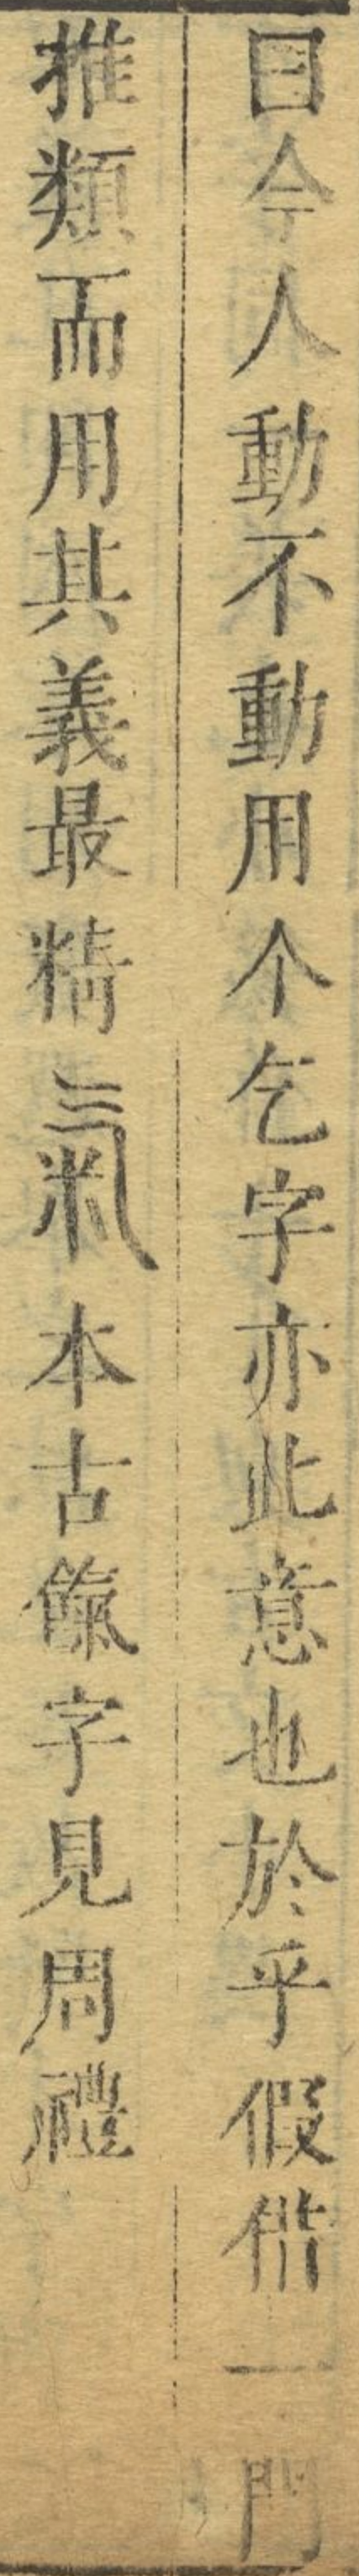 曰今人動不動用个乞字亦此意也於乎假借一門
推類而用其義最精氣本古餼字見周禮